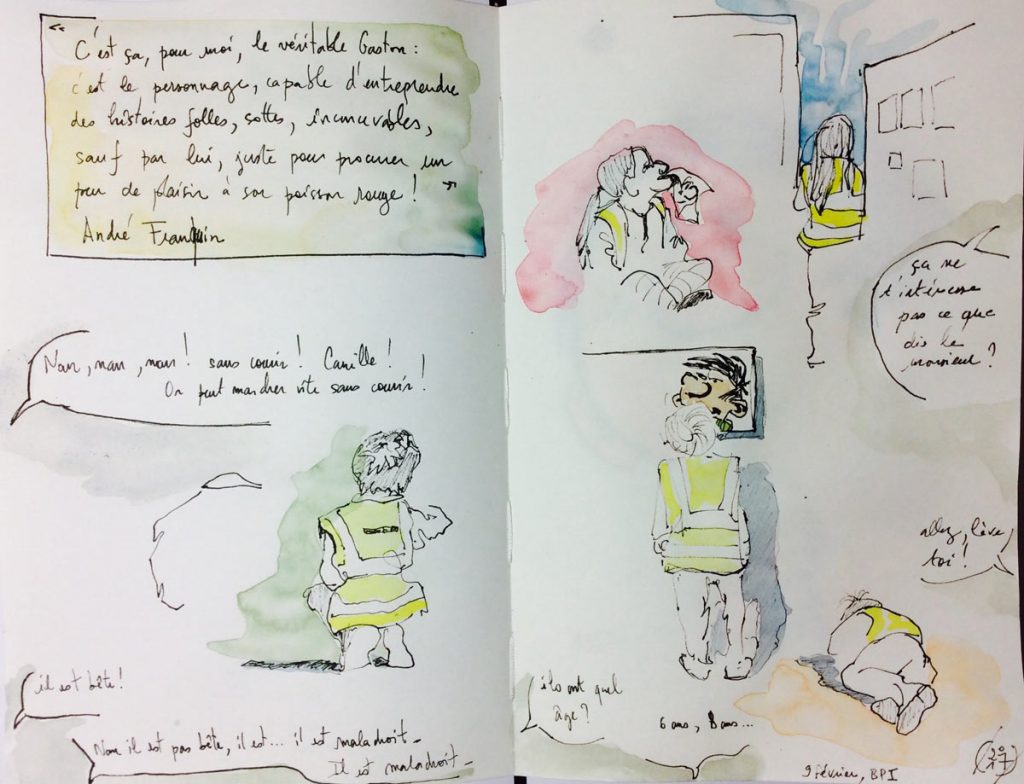 "
C'est ça, pour moi, le véritable Gaston :
c'est le personnage, capable d'entreprendre
des histoires folles, sottes, inconcevables,
sauf par lui, juste pour procurer un
peu de plaisir à son poisson rouge ! "
André Franquin
Nan, nan, nan ! sans courir ! Camille !
On peut marcher vite sans courir !
il est bête !
Non il est pas bête, il est... il est maladroit -
Il est maladroit -
ça ne
t'intéresse
pas ce que
dis le
monsieur ?
allez, lève
toi !
ils ont quel
âge ?
6 ans, 8 ans...
9 février, BPI
20
17